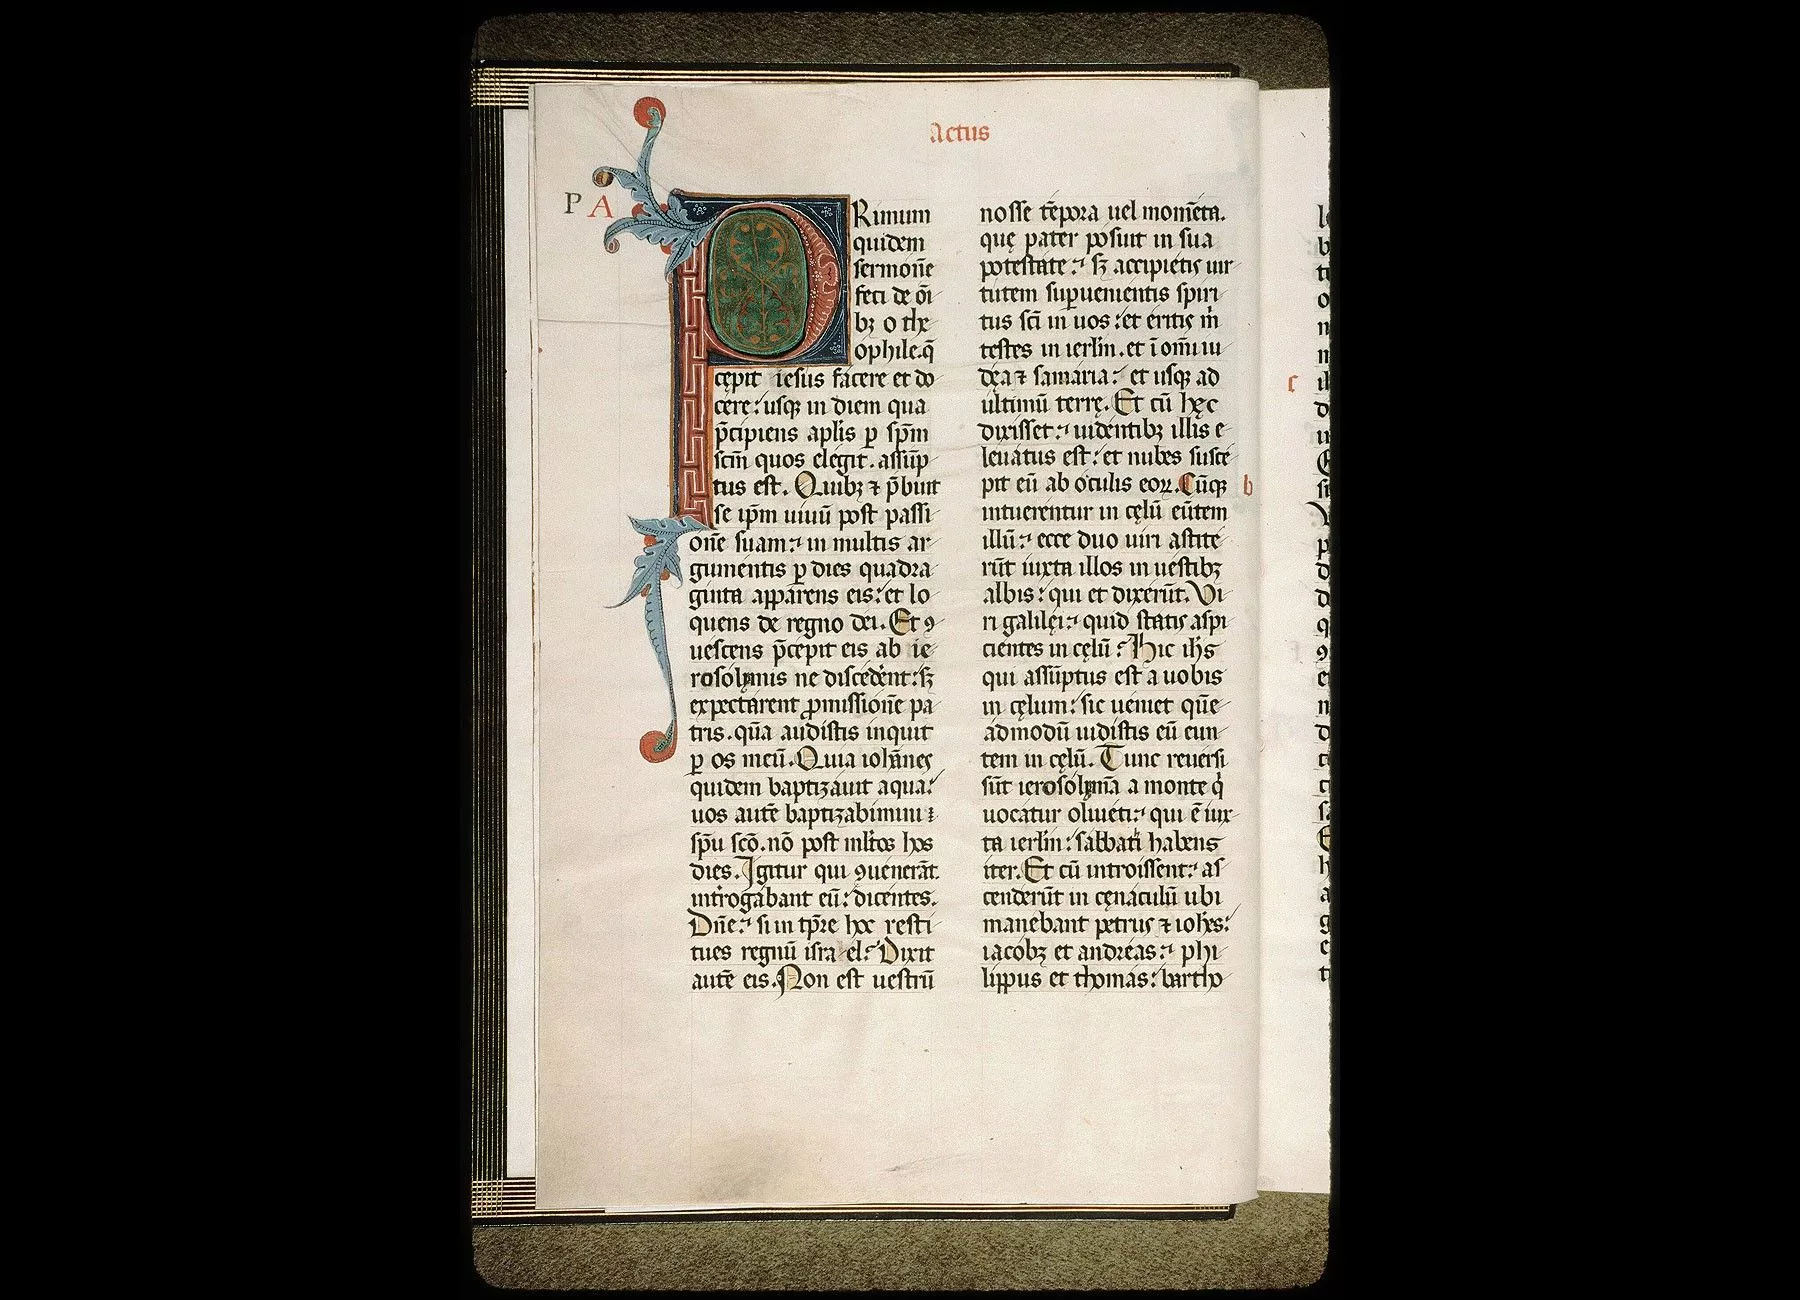 Actus
P A
PRimum
quidem
sermonē
feci de oī
bꝫ o the
ophile. q̄
cępit iesus facere et do
cere: usqꝫ in diem qua
p̄cipiens aplis p spm̄
scm̄ quos elegit. assūp
tus est. Quibꝫ ⁊ p̄buit
se ip̄m uiuū post passi
onē suam: in multis ar
gumentis p dies quadra
ginta apparens eis: et lo
quens de regno dei. Et ꝯ
uescens p̄cepit eis ab ie
rosolymis ne discederent: sꝫ
expectarent ꝓmissionē pa
tris. quā audistis inquit
p os meū. Quia iohanes
quidem baptizauit aqua:
uos autē baptizabimini
spū scō. nō post ml̄tos hos
dies. Igitur qui ꝯuenerāt
introgabant eū: dicentes.
Dn̄e: si in tp̄re hoc resti
tues regnū israel: Dixit
autē eis. Non est uestrū
nosse tēpora uel momēta.
quę pater posuit in sua
potestate: sꝫ accipietis uir
tutem supuenientis spiri
tus sc̄i in uos: et eritis m̄
testes in ierlm̄. et ī omī iu
dęa ⁊ samaria: et usqꝫ ad
ultimū terrę. Et cū hęc
dixisset: uidentibꝫ illis e
leuatus est: et nubes susce
pit eū ab oculis eoꝝ. Cūqꝫ b
intuerentur in cęlū eūtem
illū: ecce duo uiri astite
rūt iuxta illos in uestibꝫ
albis: qui et dixerūt. Vi
ri galilęi: quid statis aspi
cientes in cęlū: Hic ihs
qui assūptus est a uobis
in cęlum: sic ueniet quē
admodū uidistis eū eun
tem in cęlū. Tunc reuersi
sūt ierosolymā a monte q
uocatur oliueti: qui ē iux
ta ierlm̄: sabbati habens
iter. Et cū introissent: as
cenderūt in cęnaculū ubi
manebant petrus ⁊ iohes:
iacobꝫ et andreas: phi
lippus et thomas: bartho
c